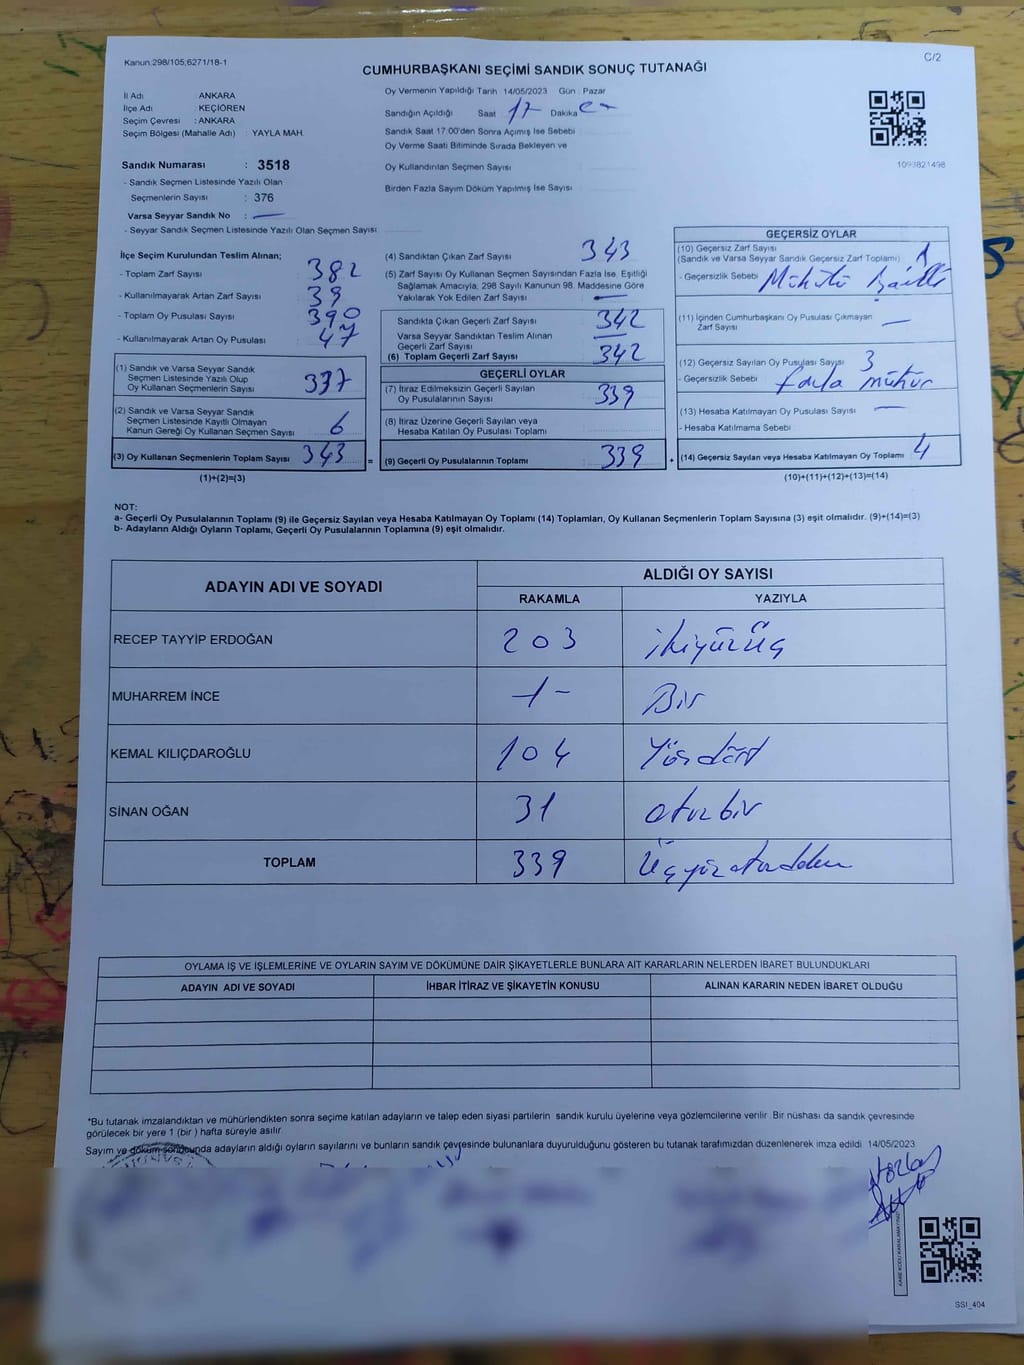 Kanun:298/105;6271/18-1
C/2
CUMHURBAŞKANI SEÇİMİ SANDIK SONUÇ TUTANAĞI
İl Adı ANKARA
İlçe Adı : KEÇİÖREN
Seçim Çevresi : ANKARA
Seçim Bölgesi (Mahalle Adı) : YAYLA MAH.
Sandık Numarası : 3518
- Sandık Seçmen Listesinde Yazılı Olan
Seçmenlerin Sayısı : 376
Varsa Seyyar Sandık No : —
- Seyyar Sandık Seçmen Listesinde Yazılı Olan Seçmen Sayısı
Oy Vermenin Yapıldığı Tarih 14/05/2023 Gün : Pazar
Sandığın Açıldığı Saat 17 Dakika
Sandık Saat 17:00'den Sonra Açımış İse Sebebi
Oy Verme Saati Bitiminde Sırada Bekleyen ve
Oy Kullandırılan Seçmen Sayısı
Birden Fazla Sayım Döküm Yapılmış İse Sayısı
1093821498
İlçe Seçim Kurulundan Teslim Alınan;
- Toplam Zarf Sayısı 382
- Kullanılmayarak Artan Zarf Sayısı 39
- Toplam Oy Pusulası Sayısı 390
- Kullanılmayarak Artan Oy Pusulası 47
(1) Sandık ve Varsa Seyyar Sandık
Seçmen Listesinde Yazılı Olup
Oy Kullanan Seçmenlerin Sayısı 337
(2) Sandık ve Varsa Seyyar Sandık
Seçmen Listesinde Kayıtlı Olmayan
Kanun Gereği Oy Kullanan Seçmen Sayısı 6
(3) Oy Kullanan Seçmenlerin Toplam Sayısı 343 =
(1)+(2)=(3)
(4) Sandıktan Çıkan Zarf Sayısı 343
(5) Zarf Sayısı Oy Kullanan Seçmen Sayısından Fazla İse, Eşitliği
Sağlamak Amacıyla, 298 Sayılı Kanunun 98. Maddesine Göre
Yakılarak Yok Edilen Zarf Sayısı —
Sandıkta Çıkan Geçerli Zarf Sayısı 342
Varsa Seyyar Sandıktan Teslim Alınan
Geçerli Zarf Sayısı —
(6) Toplam Geçerli Zarf Sayısı 342
GEÇERLİ OYLAR
(7) İtiraz Edilmeksizin Geçerli Sayılan
Oy Pusulalarının Sayısı 339
(8) İtiraz Üzerine Geçerli Sayılan veya
Hesaba Katılan Oy Pusulası Toplamı
(9) Geçerli Oy Pusulalarının Toplamı 339 +
GEÇERSİZ OYLAR
(10) Geçersiz Zarf Sayısı 1
(Sandık ve Varsa Seyyar Sandık Geçersiz Zarf Toplamı)
- Geçersizlik Sebebi Mühürlü
(11) İçinden Cumhurbaşkanı Oy Pusulası Çıkmayan
Zarf Sayısı —
(12) Geçersiz Sayılan Oy Pusulası Sayısı 3
- Geçersizlik Sebebi fazla mühür
(13) Hesaba Katılmayan Oy Pusulası Sayısı —
- Hesaba Katılmama Sebebi
(14) Geçersiz Sayılan veya Hesaba Katılmayan Oy Toplamı 4
(10)+(11)+(12)+(13)=(14)
NOT:
a- Geçerli Oy Pusulalarının Toplamı (9) ile Geçersiz Sayılan veya Hesaba Katılmayan Oy Toplamı (14) Toplamları, Oy Kullanan Seçmenlerin Toplam Sayısına (3) eşit olmalıdır. (9)+(14)=(3)
b- Adayların Aldığı Oyların Toplamı, Geçerli Oy Pusulalarının Toplamına (9) eşit olmalıdır.
ADAYIN ADI VE SOYADI ALDIĞI OY SAYISI
RAKAMLA YAZIYLA
RECEP TAYYİP ERDOĞAN 203 ikiyüzüç
MUHARREM İNCE -1- Bir
KEMAL KILIÇDAROĞLU 104 Yüzdört
SİNAN OĞAN 31 otuzbir
TOPLAM 339 Üçyüzotuzdokuz
OYLAMA İŞ VE İŞLEMLERİNE VE OYLARIN SAYIM VE DÖKÜMÜNE DAİR ŞİKAYETLERLE BUNLARA AİT KARARLARIN NELERDEN İBARET BULUNDUKLARI
ADAYIN ADI VE SOYADI İHBAR İTİRAZ VE ŞİKAYETİN KONUSU ALINAN KARARIN NEDEN İBARET OLDUĞU
*Bu tutanak imzalandıktan ve mühürlendikten sonra seçime katılan adayların ve talep eden siyasi partilerin sandık kurulu üyelerine veya gözlemcilerine verilir. Bir nüshası da sandık çevresinde
görülecek bir yere 1 (bir ) hafta süreyle asılır.
Sayım ve döküm sonucunda adayların aldığı oyların sayılarını ve bunların sandık çevresinde bulunanlara duyurulduğunu gösteren bu tutanak tarafımızdan düzenlenerek imza edildi. 14/05/2023
SSI_404